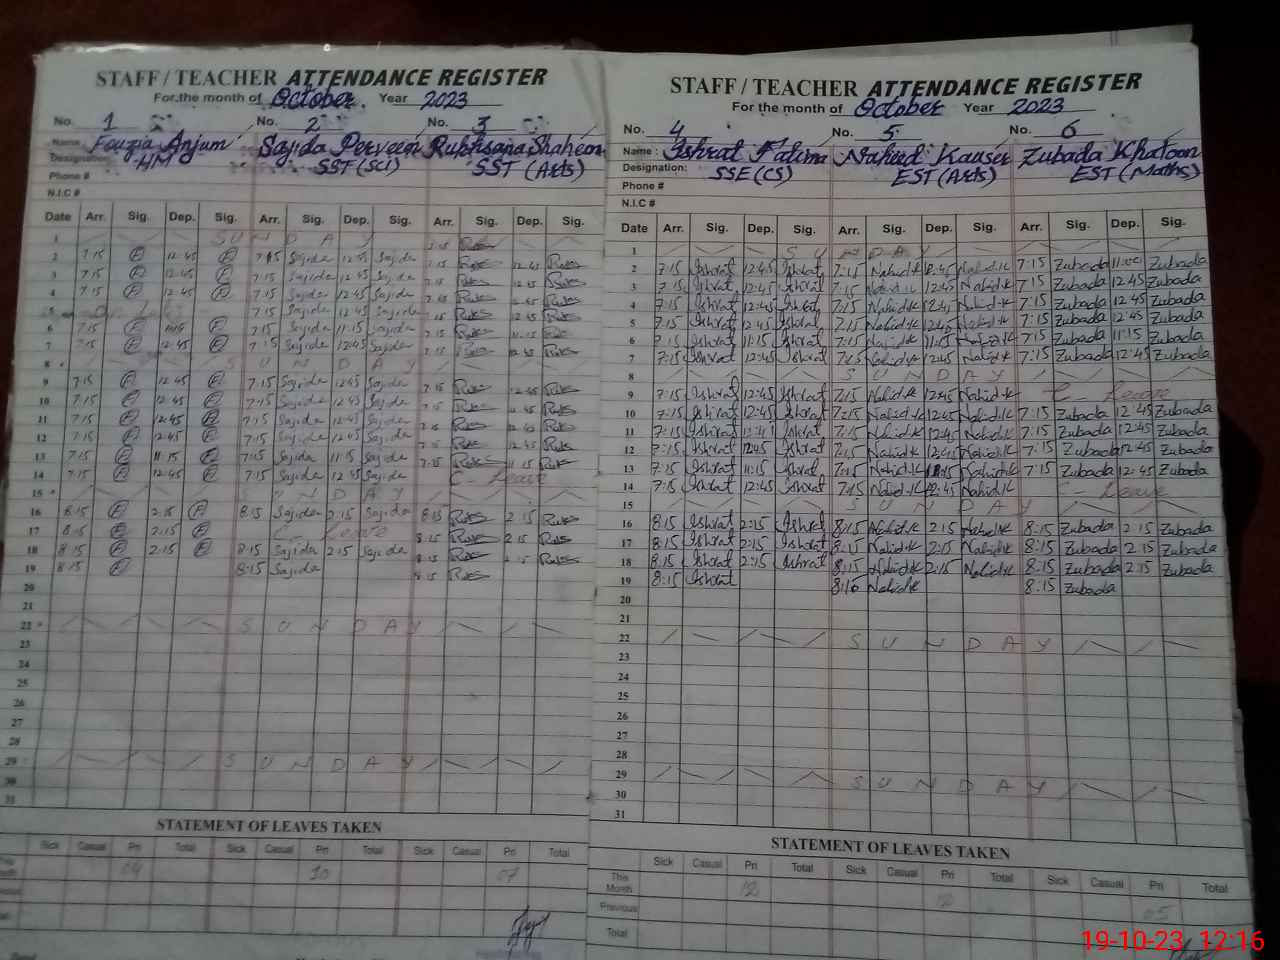 STAFF / TEACHER ATTENDANCE REGISTER
For the month of October. Year 2023
No. 1 No. 2 No. 3
Name Fouzia Anjum Sajida Perveen Rukhsana Shaheen
Designation HM SST (SCI) SST (Arts)
Phone #
N.I.C #
Date Arr. Sig. Dep. Sig. Arr. Sig. Dep. Sig. Arr. Sig. Dep. Sig.
1 SUNDAY
2 7:15 12:45 7:15 Sajida 12:45 Sajida
3 7:15 12:45 7:15 Sajida 12:45 Sajida
4 7:15 12:45 7:15 Sajida 12:45 Sajida
5 7:15 Sajida 12:45 Sajida
6 7:15 11:15 7:15 Sajida 11:15 Sajida
7 7:15 12:45 7:15 Sajida 12:45 Sajida
8 SUNDAY
9 7:15 12:45 7:15 Sajida 12:45 Sajida
10 7:15 12:45 7:15 Sajida 12:45 Sajida
11 7:15 12:45 7:15 Sajida 12:45 Sajida
12 7:15 12:45 7:15 Sajida 12:45 Sajida
13 7:15 11:15 7:15 Sajida 11:15 Sajida
14 7:15 12:45 7:15 Sajida 12:45 Sajida C - Leave
15 SUNDAY
16 8:15 2:15 8:15 Sajida 2:15 Sajida 8:15 2:15
17 8:15 2:15 C - Leave 8:15 2:15
18 8:15 2:15 8:15 Sajida 2:15 Sajida 8:15 2:15
19 8:15 8:15 Sajida 8:15
20
21
22 SUNDAY
23
24
25
26
27
28
29 SUNDAY
30
31
STATEMENT OF LEAVES TAKEN
Sick Casual Pri Total Sick Casual Pri Total Sick Casual Pri Total
04 10 07
STAFF / TEACHER ATTENDANCE REGISTER
For the month of October Year 2023
No. 4 No. 5 No. 6
Name : Ishrat Fatima Naheed Kauser Zubada Khatoon
Designation: SSE (CS) EST (Arts) EST (Maths)
Phone #
N.I.C #
Date Arr. Sig. Dep. Sig. Arr. Sig. Dep. Sig. Arr. Sig. Dep. Sig.
1 SUNDAY
2 7:15 Ishrat 12:45 Ishrat 7:15 Nahid.K 12:45 Nahid.K 7:15 Zubada Zubada
3 7:15 Ishrat 12:45 Ishrat 7:15 Nahid.K 12:45 Nahid.K 7:15 Zubada 12:45 Zubada
4 7:15 Ishrat 12:45 Ishrat 7:15 Nahid.K 12:45 Nahid.K 7:15 Zubada 12:45 Zubada
5 7:15 Ishrat 12:45 Ishrat 7:15 Nahid.K 12:45 Nahid.K 7:15 Zubada 12:45 Zubada
6 7:15 Ishrat 11:15 Ishrat 7:15 Nahid.K 11:15 Nahid.K 7:15 Zubada 11:15 Zubada
7 7:15 Ishrat 12:45 Ishrat 7:15 Nahid.K 12:45 Nahid.K 7:15 Zubada 12:45 Zubada
8 SUNDAY
9 7:15 Ishrat 12:45 Ishrat 7:15 Nahid.K 12:45 Nahid.K C - Leave
10 7:15 Ishrat 12:45 Ishrat 7:15 Nahid.K 12:45 Nahid.K 7:15 Zubada 12:45 Zubada
11 7:15 Ishrat Ishrat 7:15 Nahid.K 12:45 Nahid.K 7:15 Zubada 12:45 Zubada
12 7:15 Ishrat 12:45 Ishrat 7:15 Nahid.K 12:45 Nahid.K 7:15 Zubada 12:45 Zubada
13 7:15 Ishrat 11:15 Ishrat 7:15 Nahid.K Nahid.K 7:15 Zubada 12:45 Zubada
14 7:15 Ishrat 12:45 Ishrat 7:15 Nahid.K 12:45 Nahid.K C - Leave
15 SUNDAY
16 8:15 Ishrat 2:15 Ishrat 8:15 Nahid.K 2:15 Nahid.K 8:15 Zubada 2:15 Zubada
17 8:15 Ishrat 2:15 Ishrat 8:15 Nahid.K 2:15 Nahid.K 8:15 Zubada 2:15 Zubada
18 8:15 Ishrat 2:15 Ishrat 8:15 Nahid.K 2:15 Nahid.K 8:15 Zubada 2:15 Zubada
19 8:15 Ishrat Nahid.K 8:15 Zubada
20
21
22 SUNDAY
23
24
25
26
27
28
29 SUNDAY
30
31
STATEMENT OF LEAVES TAKEN
Sick Casual Pri Total Sick Casual Pri Total Sick Casual Pri Total
This Month 12 12 05
Previous
Total
19-10-23 12:16